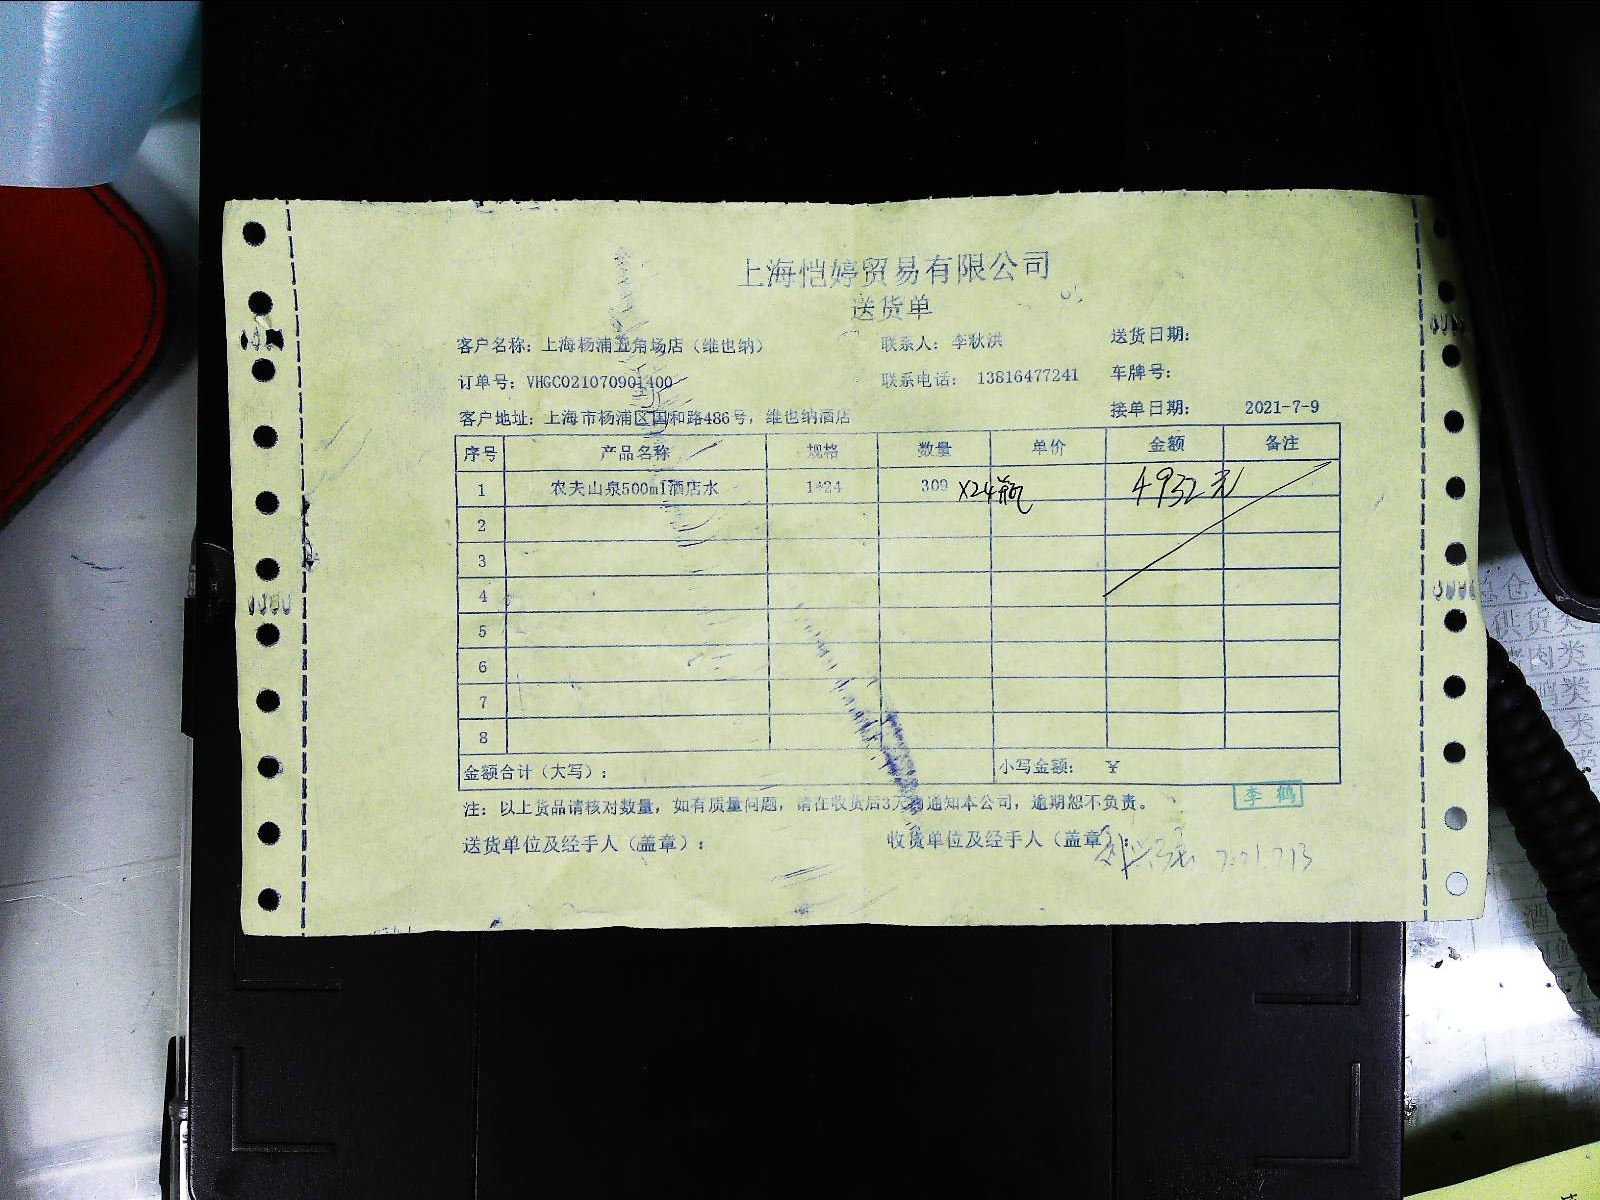 上海恺婷贸易有限公司
送货单
客户名称：上海杨浦五角场店（维也纳） 联系人：李秋洪 送货日期：
订单号：VHGCO21070901400 联系电话： 13816477241 车牌号：
客户地址：上海市杨浦区国和路486号，维也纳酒店 接单日期： 2021-7-9
序号 产品名称 规格 数量 单价 金额 备注
1 农夫山泉500ml酒店水 1*24 309 X24瓶 4932元
2
3
4
5
6
7
8
金额合计（大写）： 小写金额： ¥
李鹤
注：以上货品请核对数量，如有质量问题，请在收货后3天内通知本公司，逾期恕不负责。
送货单位及经手人（盖章）： 收货单位及经手人（盖章）：
供货类
肉类
类
类